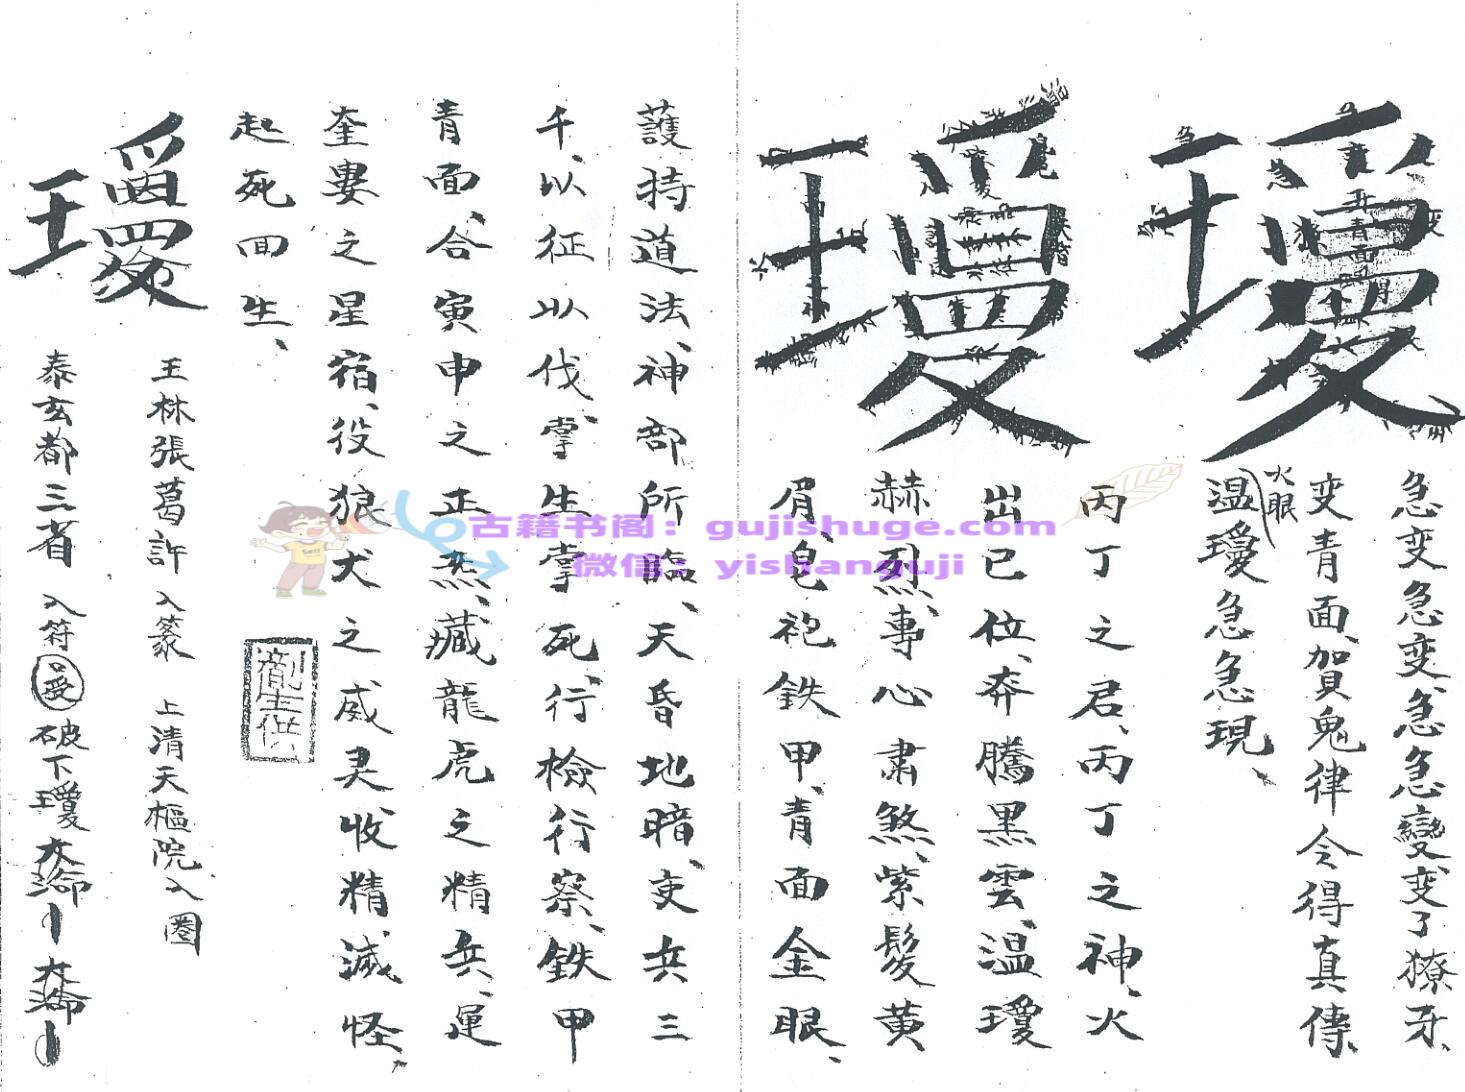 瓊
急变急变急急變变了獠牙、
变青面、賀鬼律令得真傳、
火眼
温瓊急急現、
瓊
丙丁之君、丙丁之神、火
出巳位、奔騰黑雲、温瓊
赫烈、專心肅煞、紫髮黄
眉、皂袍鉄甲、青面金眼、
護持道法、神部所臨、天昏地暗、吏兵三
千、以征以伐、掌生掌死、行檢行察、鉄甲
青面、合寅申之正炁、藏龍虎之精兵、運
奎婁之星宿、役狼犬之威灵收精滅怪、
起死回生、
王林張葛許入篆 上清天樞院入圈
泰玄都三省 入符 破下瓊
古籍书阁：gujishuge.com
微信：yishanguji